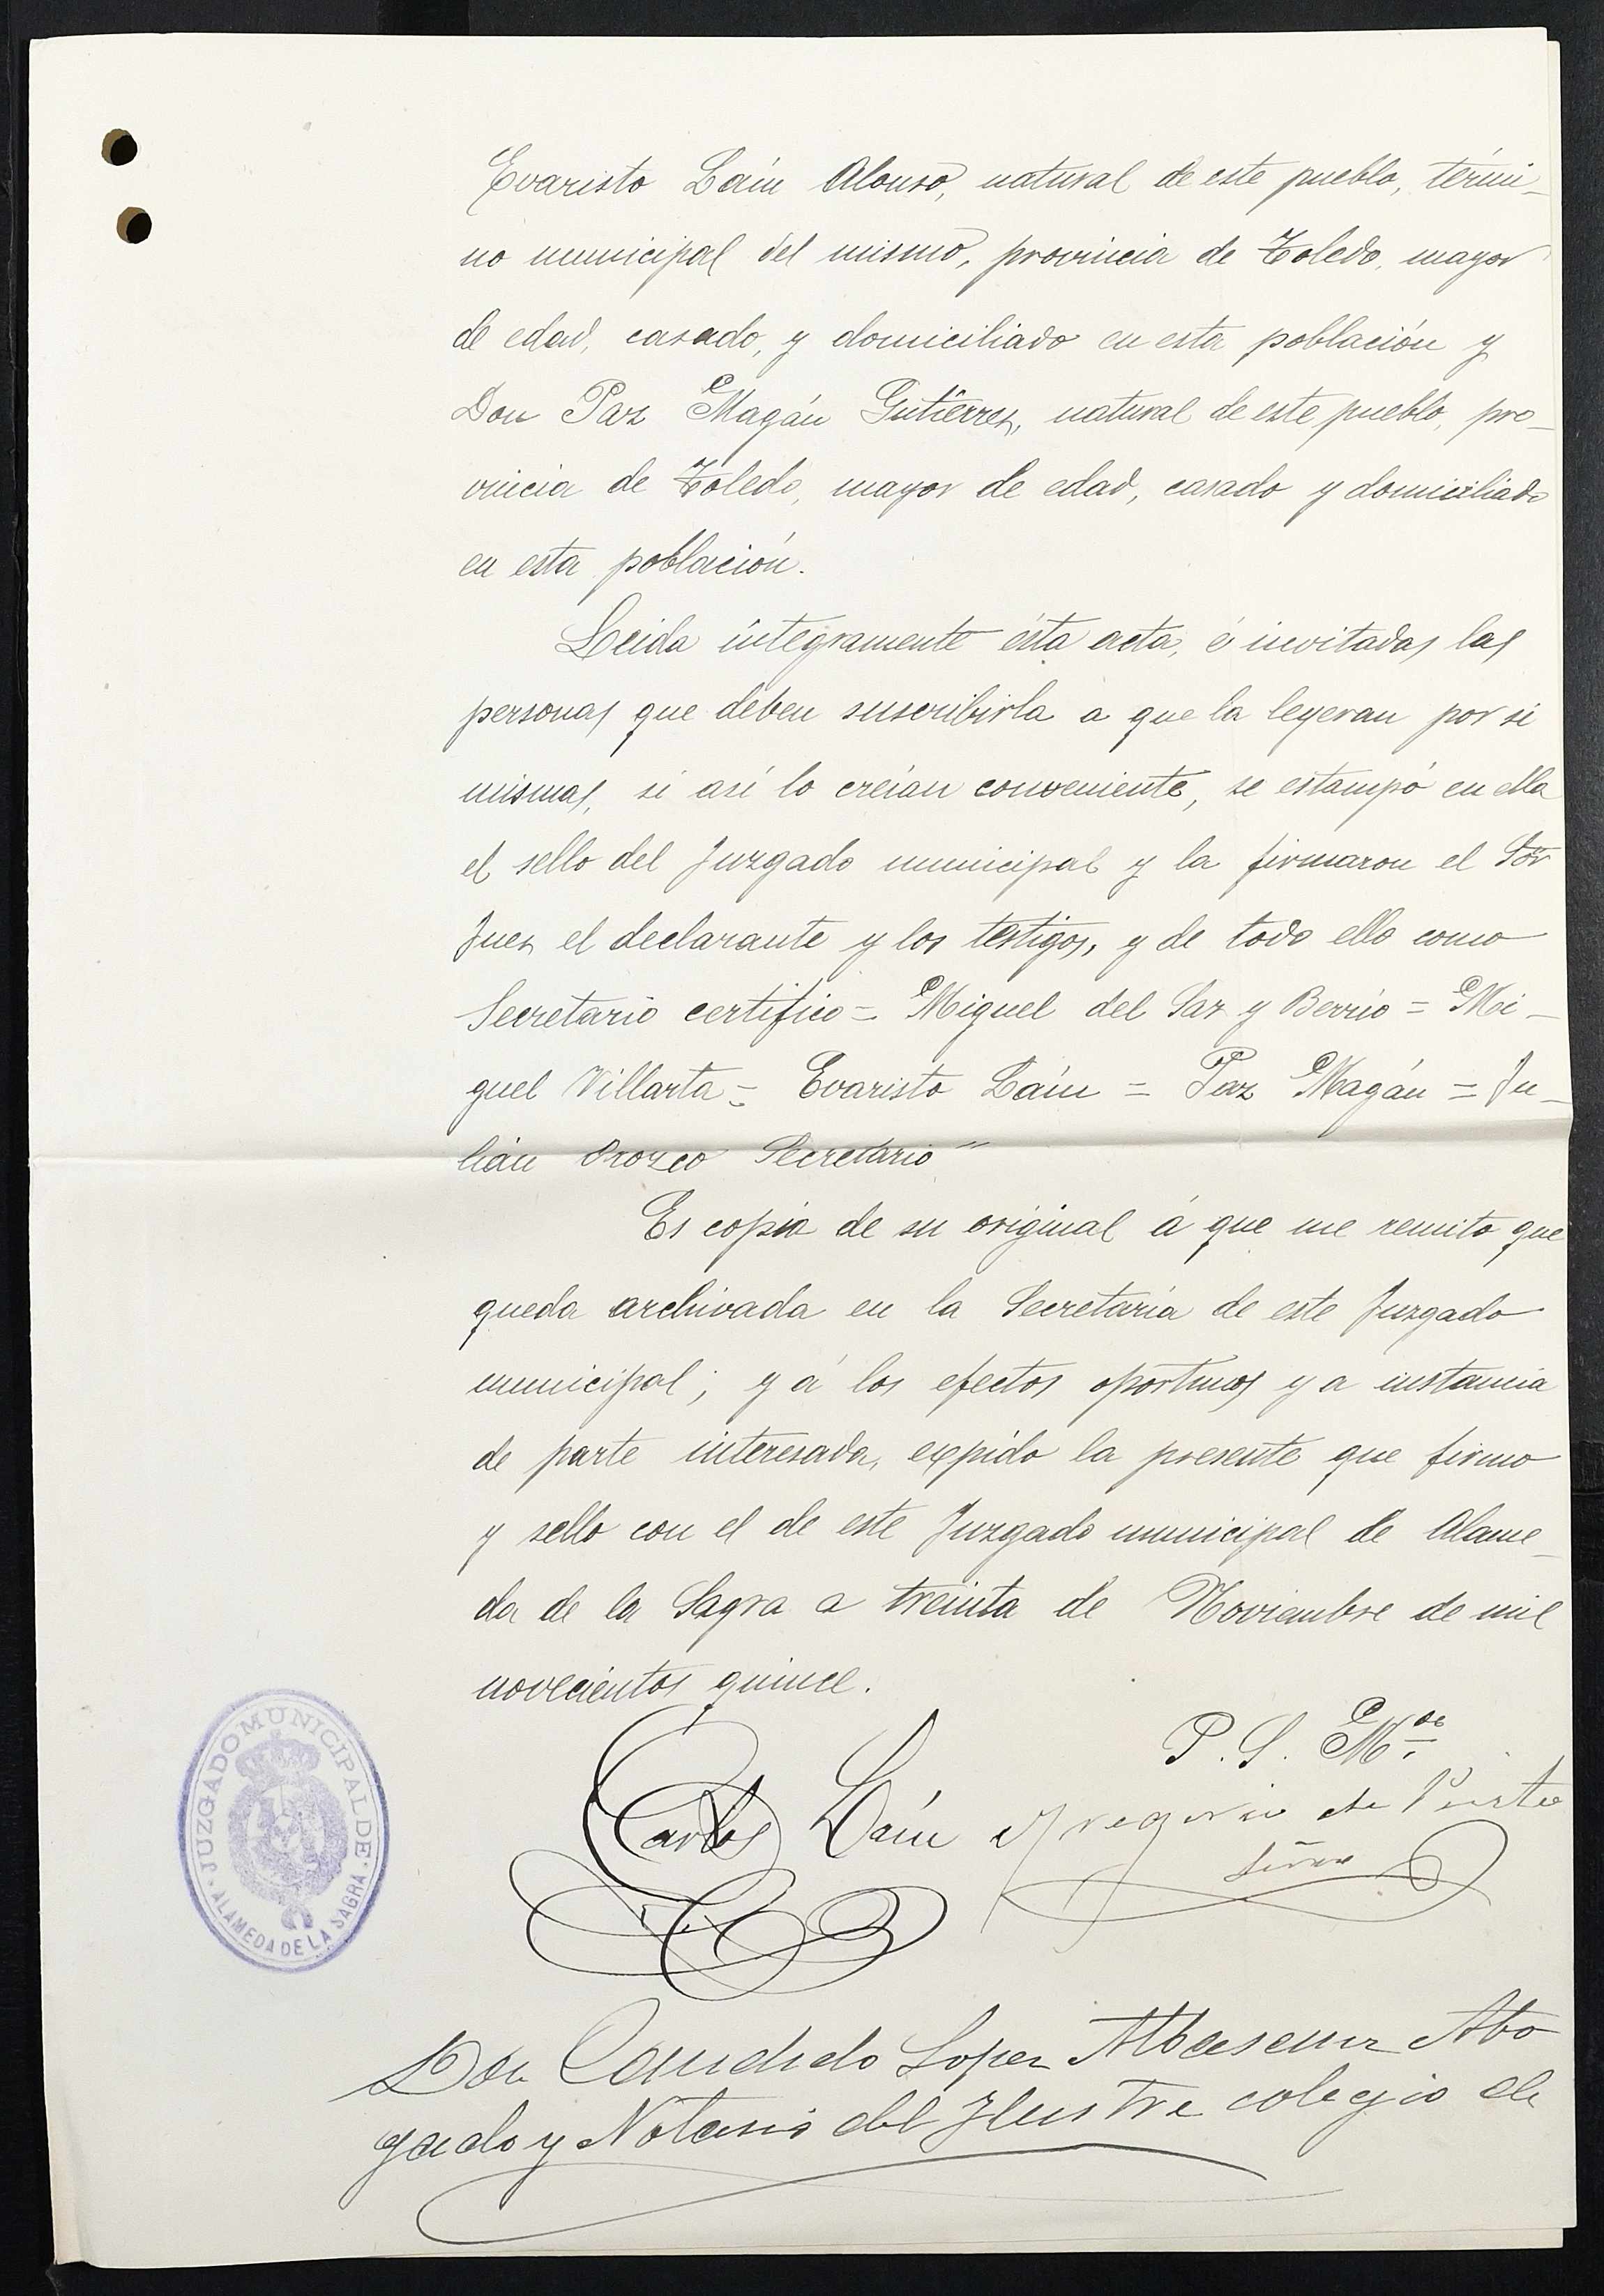 Evaristo Laín Alonso, natural de este pueblo, térmi-
no municipal del mismo, provincia de Toledo, mayor
de edad, casado, y domiciliado en esta población y
Don Paz Magán Gutiérrez, natural de este pueblo, pro-
vincia de Toledo, mayor de edad, casado y domiciliado
en esta población.
Leida íntegramente ésta acta, é invitadas las
personas que deben suscribirla a que la leyeran por si
mismas, si así lo creían conveniente, se estampó en ella
el sello del Juzgado municipal y la firmaron el Sor
Juez el declarante y los testigos, y de todo ello como
Secretario certifico = Miguel del Saz y Berrio = Mi-
guel Villarta = Evaristo Laín = Paz Magán = Ju-
lián Orozco Secretario"
Es copia de su original á que me remito que
queda archivada en la Secretaría de este Juzgado
municipal; y á los efectos oportunos y a instancia
de parte interesada, expido la presente que firmo
y sello con el de este Juzgado municipal de Alame-
da de la Sagra a treinta de Noviembre de mil
novecientos quince.
P. S. M.
Carlos Laín Gregorio de
JUZGADO MUNICIPAL DE
ALAMEDA DE LA SAGRA
Don Candido Lopez Abo
gado y Notario del Ilustre colegio de